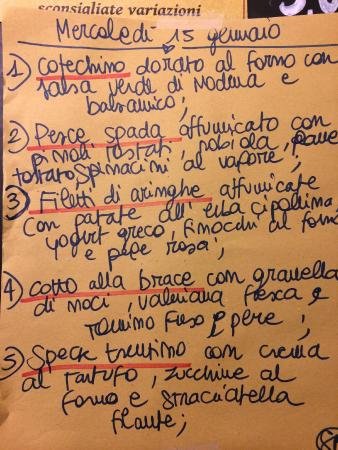 sconsigliate variazioni
Mercoledì 15 gennaio
1) Cotechino dorato al forno con
salsa verde di Modena e
balsamico;
2) Pesce spada affumicato con
pinoli tostati, robiola, pane
tostato, spinacini al vapore;
3) Filetti di aringhe affumicate
con patate all'erba cipollina,
yogurt greco, finocchi al forno
e pepe rosa;
4) Cotto alla brace con granella
di noci, valeriana fresca e
tomino fuso e pere;
5) Speck trentino con crema
al tartufo, zucchine al
forno e stracciatella